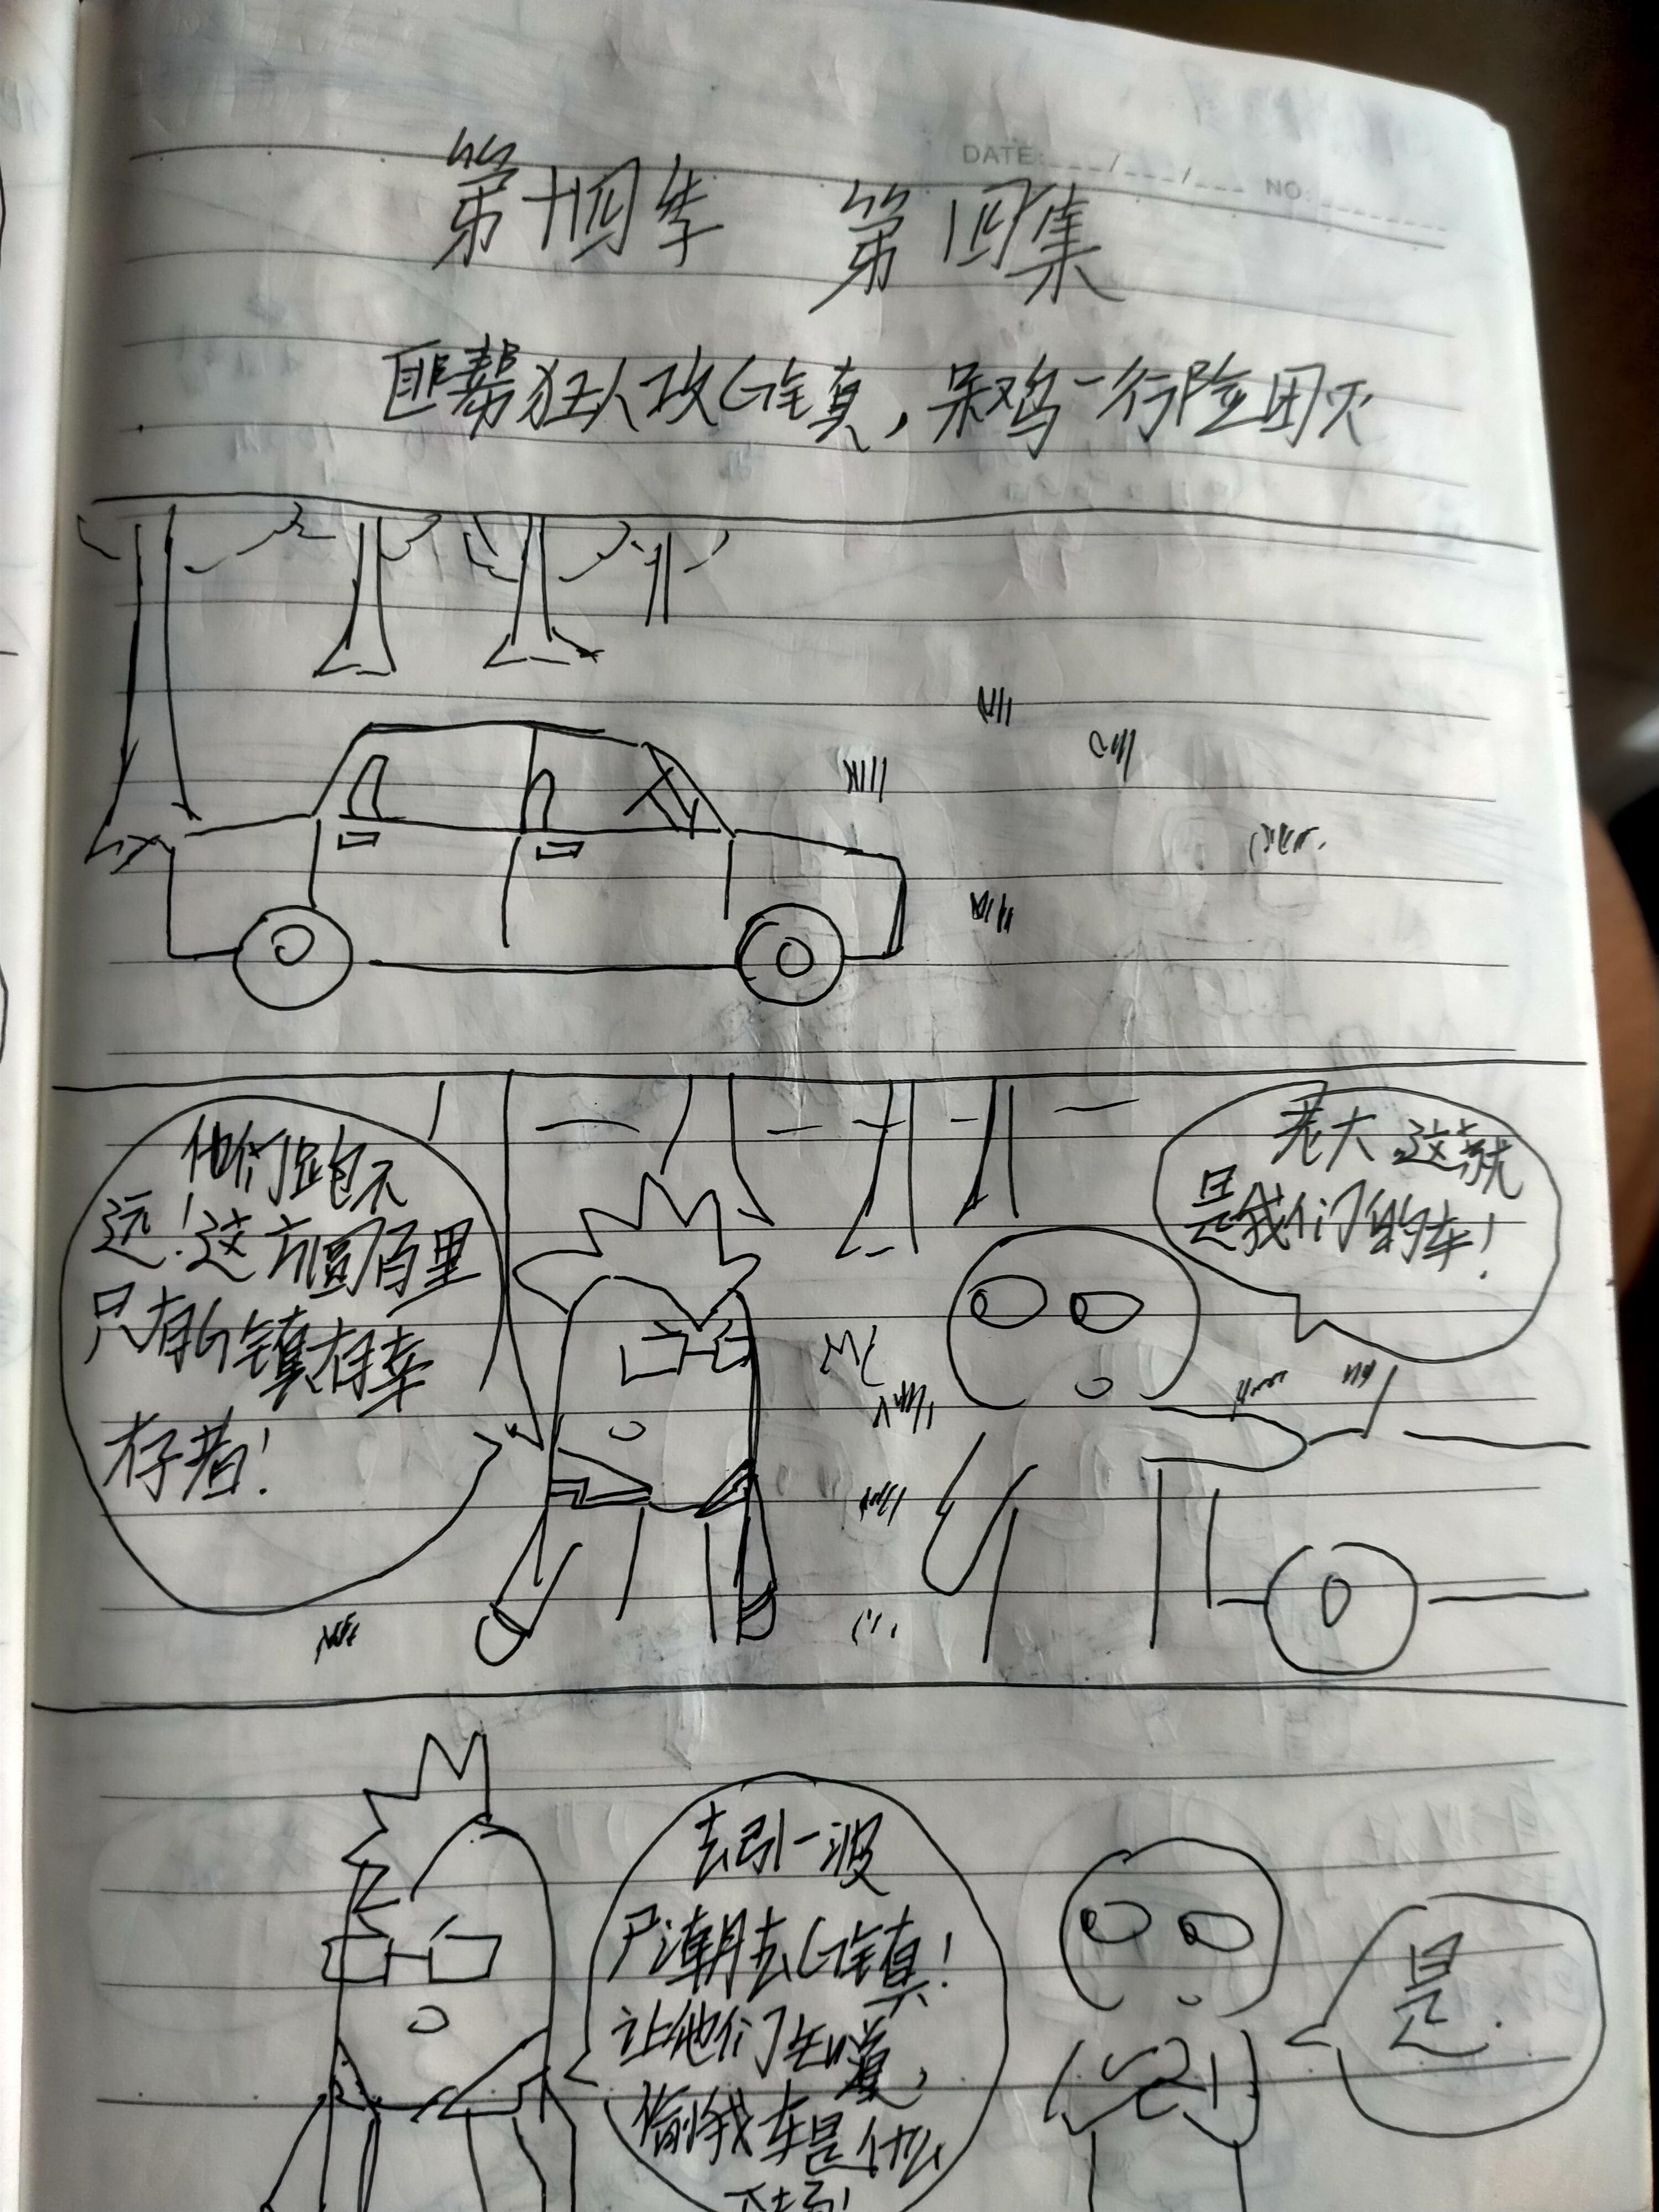 DATE: ___/___/___ NO: ______
第十四季 第四集
匪帮狂人攻G镇,呆鸡一行险团灭
他们跑不
远!这方圆百里
只有G镇有幸
存者!
老大,这就
是我们的车!
去引一波
尸潮去G镇!
让他们知道,
偷我车是什么
是.